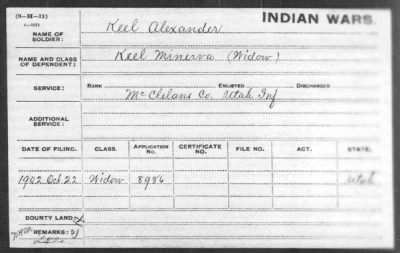 (3-H-11)
INDIAN WARS.
NAME OF SOLDIER: Keel Alexander
NAME AND CLASS OF DEPENDENT: Keel Minerva (Widow)
SERVICE: RANK ENLISTED DISCHARGED
McClelans Co. Utah Inf
ADDITIONAL SERVICE:
DATE OF FILING. CLASS. APPLICATION No. CERTIFICATE No. FILE NO. ACT. STATE.
1902 Oct 22 Widow 8986 Utah
BOUNTY LAND:
REMARKS: